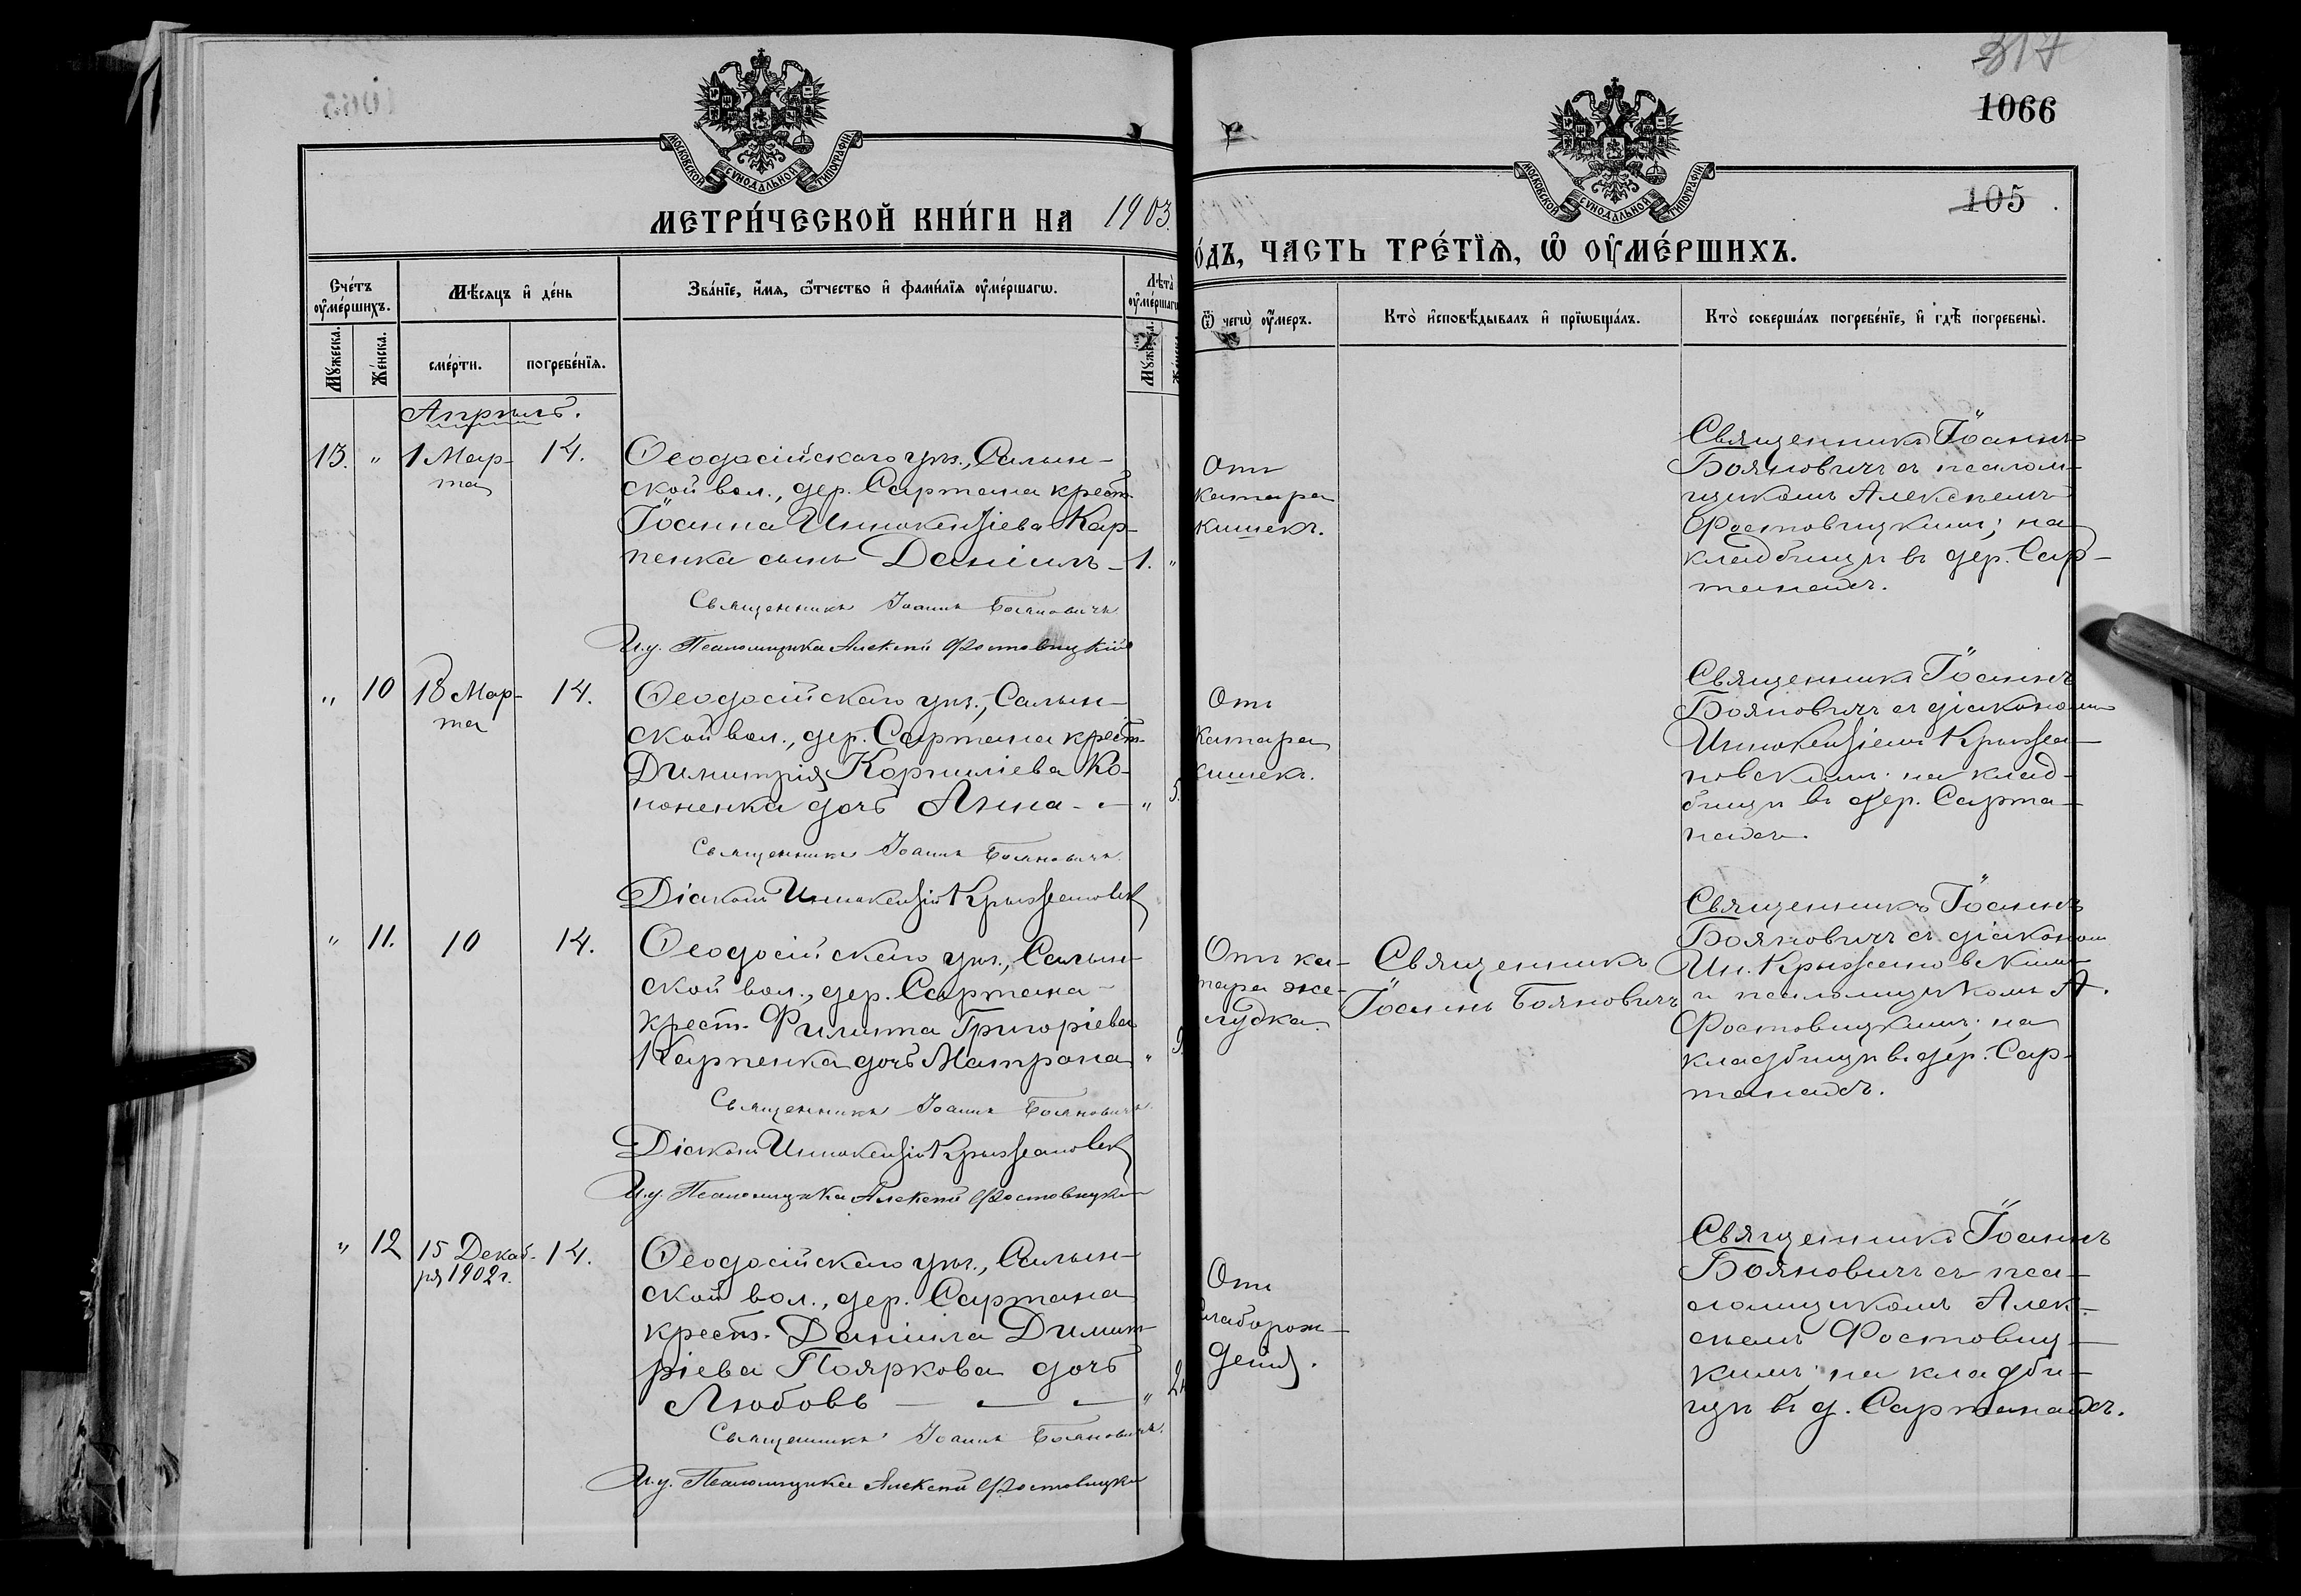 317
1066
105
МОСКОВСКОЙ СѴНОДАЛЬНОЙ ТИПОГРАФІИ
МОСКОВСКОЙ СѴНОДАЛЬНОЙ ТИПОГРАФІИ
МЕТРИ́ЧЕСКОЙ КНИ́ГИ НА 1903.
О́ДЪ, ЧАСТЬ ТРЕ́ТЇѦ, Ѡ ОУМЕ́РШИХЪ.
Сче́тъ оуме́ршихъ.
Мѣсяцъ и де́нь
Зва́нїе, и́мя, ѿтчество и фами́лїя оуме́ршагѡ.
Лѣта̀ оуме́ршагѡ
Мꙋ́жеска.
Же́нска.
сме́рти.
погребе́нїя.
Мꙋ́жеска.
Ѿ чегѡ̀ оу́меръ.
Кто̀ исповѣ́дывалъ и прїѡбща́лъ.
Кто̀ соверша́лъ погребе́нїе, и гдѣ̀ погребены̀.
Апрѣль.
13. " 1 Мар-
та
14.
Ѳеодосійскаго уѣз., Салын-
ской вол., дер. Сартана крест.
Іоанна Иннокентіева Кар-
пенка сынъ Даніилъ - 1. "
Священникъ Іоаннъ Бояновичъ
И.у. Псаломщика Алексѣй Фостовицкій
Отъ
катара
кишекъ.
Священникъ Іоаннъ
Бояновичъ съ псалом-
щикомъ Алексѣемъ
Фостовицкимъ; на
кладбищѣ въ дер. Сар-
танахъ.
" 10 18 Мар-
та
14.
Ѳеодосійскаго уѣз., Салын-
ской вол., дер. Сартана крест.
Димитрія Корниліева Ко-
ноненка дочь Анна - - " 5.
Священникъ Іоаннъ Бояновичъ.
Діаконъ Иннокентій
Отъ
катара
кишекъ.
Священникъ Іоаннъ
Бояновичъ съ діакономъ
Иннокентіемъ Крыжа-
новскимъ на клад-
бищѣ въ дер. Сарта-
нахъ.
" 11. 10 14.
Ѳеодосійскаго уѣз., Салын-
ской вол., дер. Сартана -
крест. Филиппа Григоріева
Карпенка дочь Матрона "
Священникъ Іоаннъ Бояновичъ.
Діаконъ Иннокентій
И.у. Псаломщика Алексѣй Фостовицкій
Отъ ка-
тара же-
лудка.
Священникъ
Іоаннъ Бояновичъ
Священникъ Іоаннъ
Бояновичъ съ діакономъ
Ин. Крыжановскимъ
и псаломщикомъ А.
Фостовицкимъ; на
кладбищѣ въ дер. Сар-
танахъ.
" 12 15 Декаб-
ря 1902 г.
14.
Ѳеодосійскаго уѣз., Салын-
ской вол., дер. Сартана
крест. Даніила Димит-
ріева Пояркова дочь
Любовь - - - "
Священникъ Іоаннъ Бояновичъ.
И.у. Псаломщика Алексѣй Фостовицкій
Отъ
слаборож-
денія.
Священникъ Іоаннъ
Бояновичъ съ пса-
ломщикомъ Алек-
сѣемъ Фостовиц-
кимъ; на кладби-
щѣ въ д. Сартанахъ.